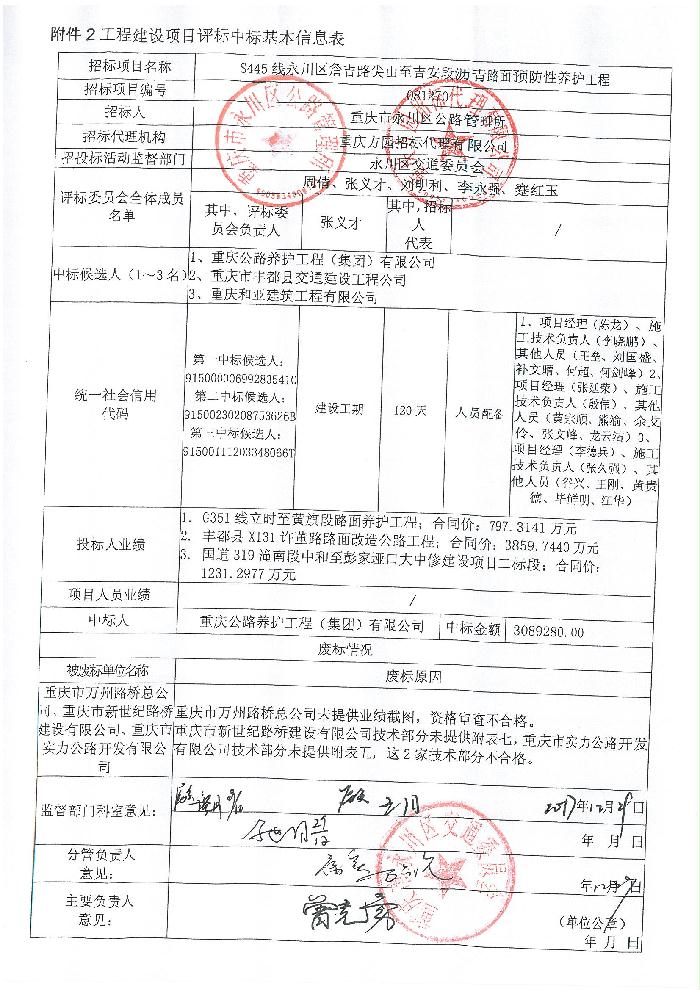 附件 2 工程建设项目评标中标基本信息表
招标项目名称
S445 线永川区茶青路尖山至吉安段沥青路面预防性养护工程
招标项目编号
招标人
重庆市永川区公路管理所
招标代理机构
重庆方园招标代理有限公司
招投标活动监督部门
永川区交通委员会
评标委员会全体成员
名单
周倩、张义才、刘明利、李永强、蹇红玉
其中、评标委
员会负责人
张义才
其中,招标
人
代表
/
中标候选人(1~3 名)
1、重庆公路养护工程(集团)有限公司
2、重庆市丰都县交通建设工程公司
3、重庆和亚建筑工程有限公司
统一社会信用
代码
第一中标候选人:
第二中标候选人:
第三中标候选人:
建设工期
120 天
人员配备
1、项目经理(陈龙)、施
工技术负责人(李晓鹏)、
其他人员(王垒、刘国盛、
补文晴、何超、何剑峰)2、
项目经理(张廷荣)、施工
技术负责人(殷信)、其他
人员(黄宗顺、熊渝、余文
伶、张文峰、龙云洁)3、
项目经理(李德兵)、施工
技术负责人(张久强)、其
他人员(谷兴、王刚、黄贵
德、毕鲜明、红华)
投标人业绩
1. G351 线立时至黄旗段路面养护工程;合同价:797.3141 万元
2. 丰都县 X131 许董路路面改造公路工程;合同价:3859.7440 万元
3. 国道 319 潼南段中和至彭家垭口大中修建设项目二标段;合同价:
1231.2977 万元
项目人员业绩
/
中标人
重庆公路养护工程(集团)有限公司
中标金额
3089280.00
废标情况
被废标单位名称
废标原因
重庆市万州路桥总公
司、重庆市新世纪路桥
建设有限公司、重庆市
实力公路开发有限公
司
重庆市万州路桥总公司未提供业绩截图,资格审查不合格。
重庆市新世纪路桥建设有限公司技术部分未提供附表七,重庆市实力公路开发
有限公司技术部分未提供附表五,这 2 家技术部分不合格。
监督部门科室意见:
2017年12月29日
年 月 日
分管负责人
意见:
年12月 日
主要负责人
意见:
(单位公章)
年 月 日
重庆市永川区公路管理所
重庆市永川区交通委员会